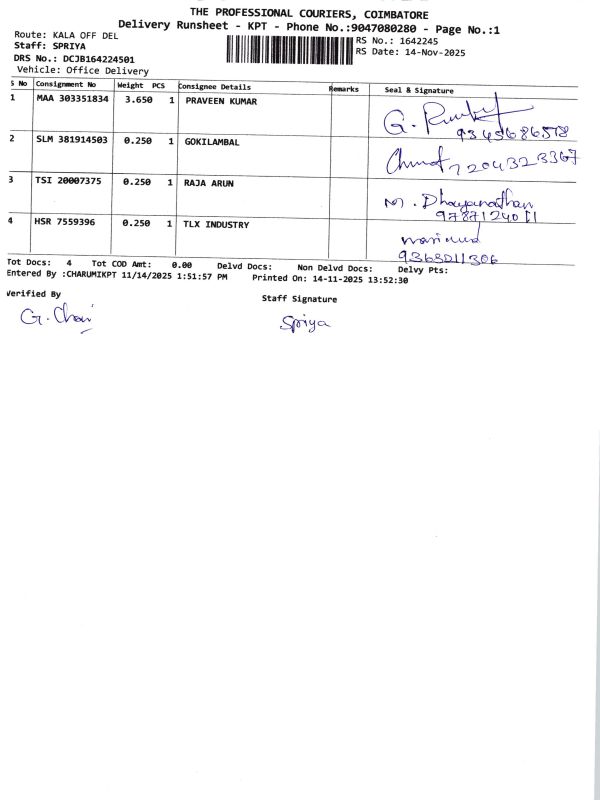 THE PROFESSIONAL COURIERS, COIMBATORE
Delivery Runsheet - KPT - Phone No.:9047080280 - Page No.:1
Route: KALA OFF DEL
Staff: SPRIYA
DRS No.: DCJB164224501
Vehicle: Office Delivery
RS No.: 1642245
RS Date: 14-Nov-2025
S No Consignment No Weight PCS Consignee Details Remarks Seal & Signature
1 MAA 303351834 3.650 1 PRAVEEN KUMAR G.
9345686578
2 SLM 381914503 0.250 1 GOKILAMBAL 7204323367
3 TSI 20007375 0.250 1 RAJA ARUN M. Dhayanathan
9787124011
4 HSR 7559396 0.250 1 TLX INDUSTRY
9365211306
Tot Docs: 4 Tot COD Amt: 0.00 Delvd Docs: Non Delvd Docs: Delvy Pts:
Entered By :CHARUMIKPT 11/14/2025 1:51:57 PM Printed On: 14-11-2025 13:52:30
Verified By Staff Signature
G. Spriya